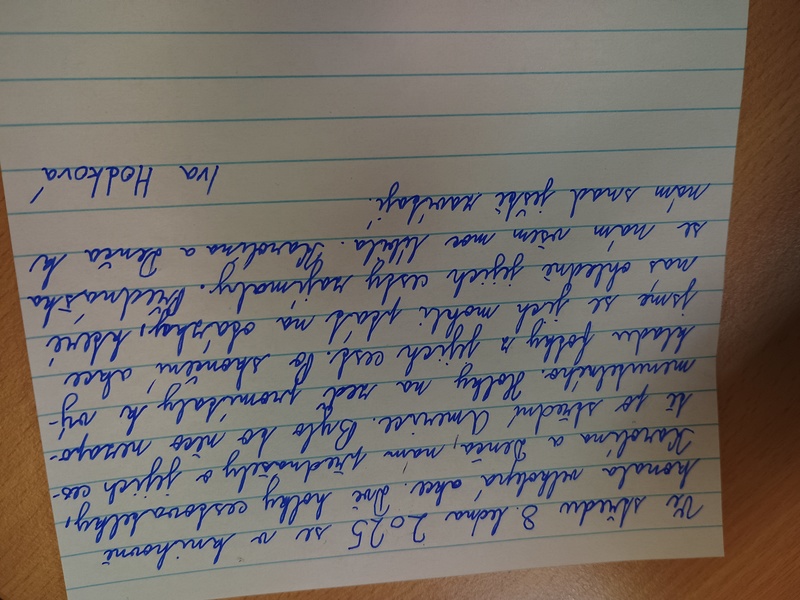 Ve středu 8. ledna 2025 se v knihovně
konala velkolepá akce. Dvě holky cestovatelky,
Karolína a Denča, nám přednášely o jejich ces-
tě po střední Americe. Bylo to něco nezapo-
menutelného. Holky na zeď promítaly k vý-
kladu fotky z jejich cest. Po skončení akce
jsme se jich mohli ptát na otázky, které
nás ohledně jejich cesty zajímaly. Přednáška
se nám všem moc líbila. Karolína a Denča k
nám snad ještě zavítají.
Iva Hodková